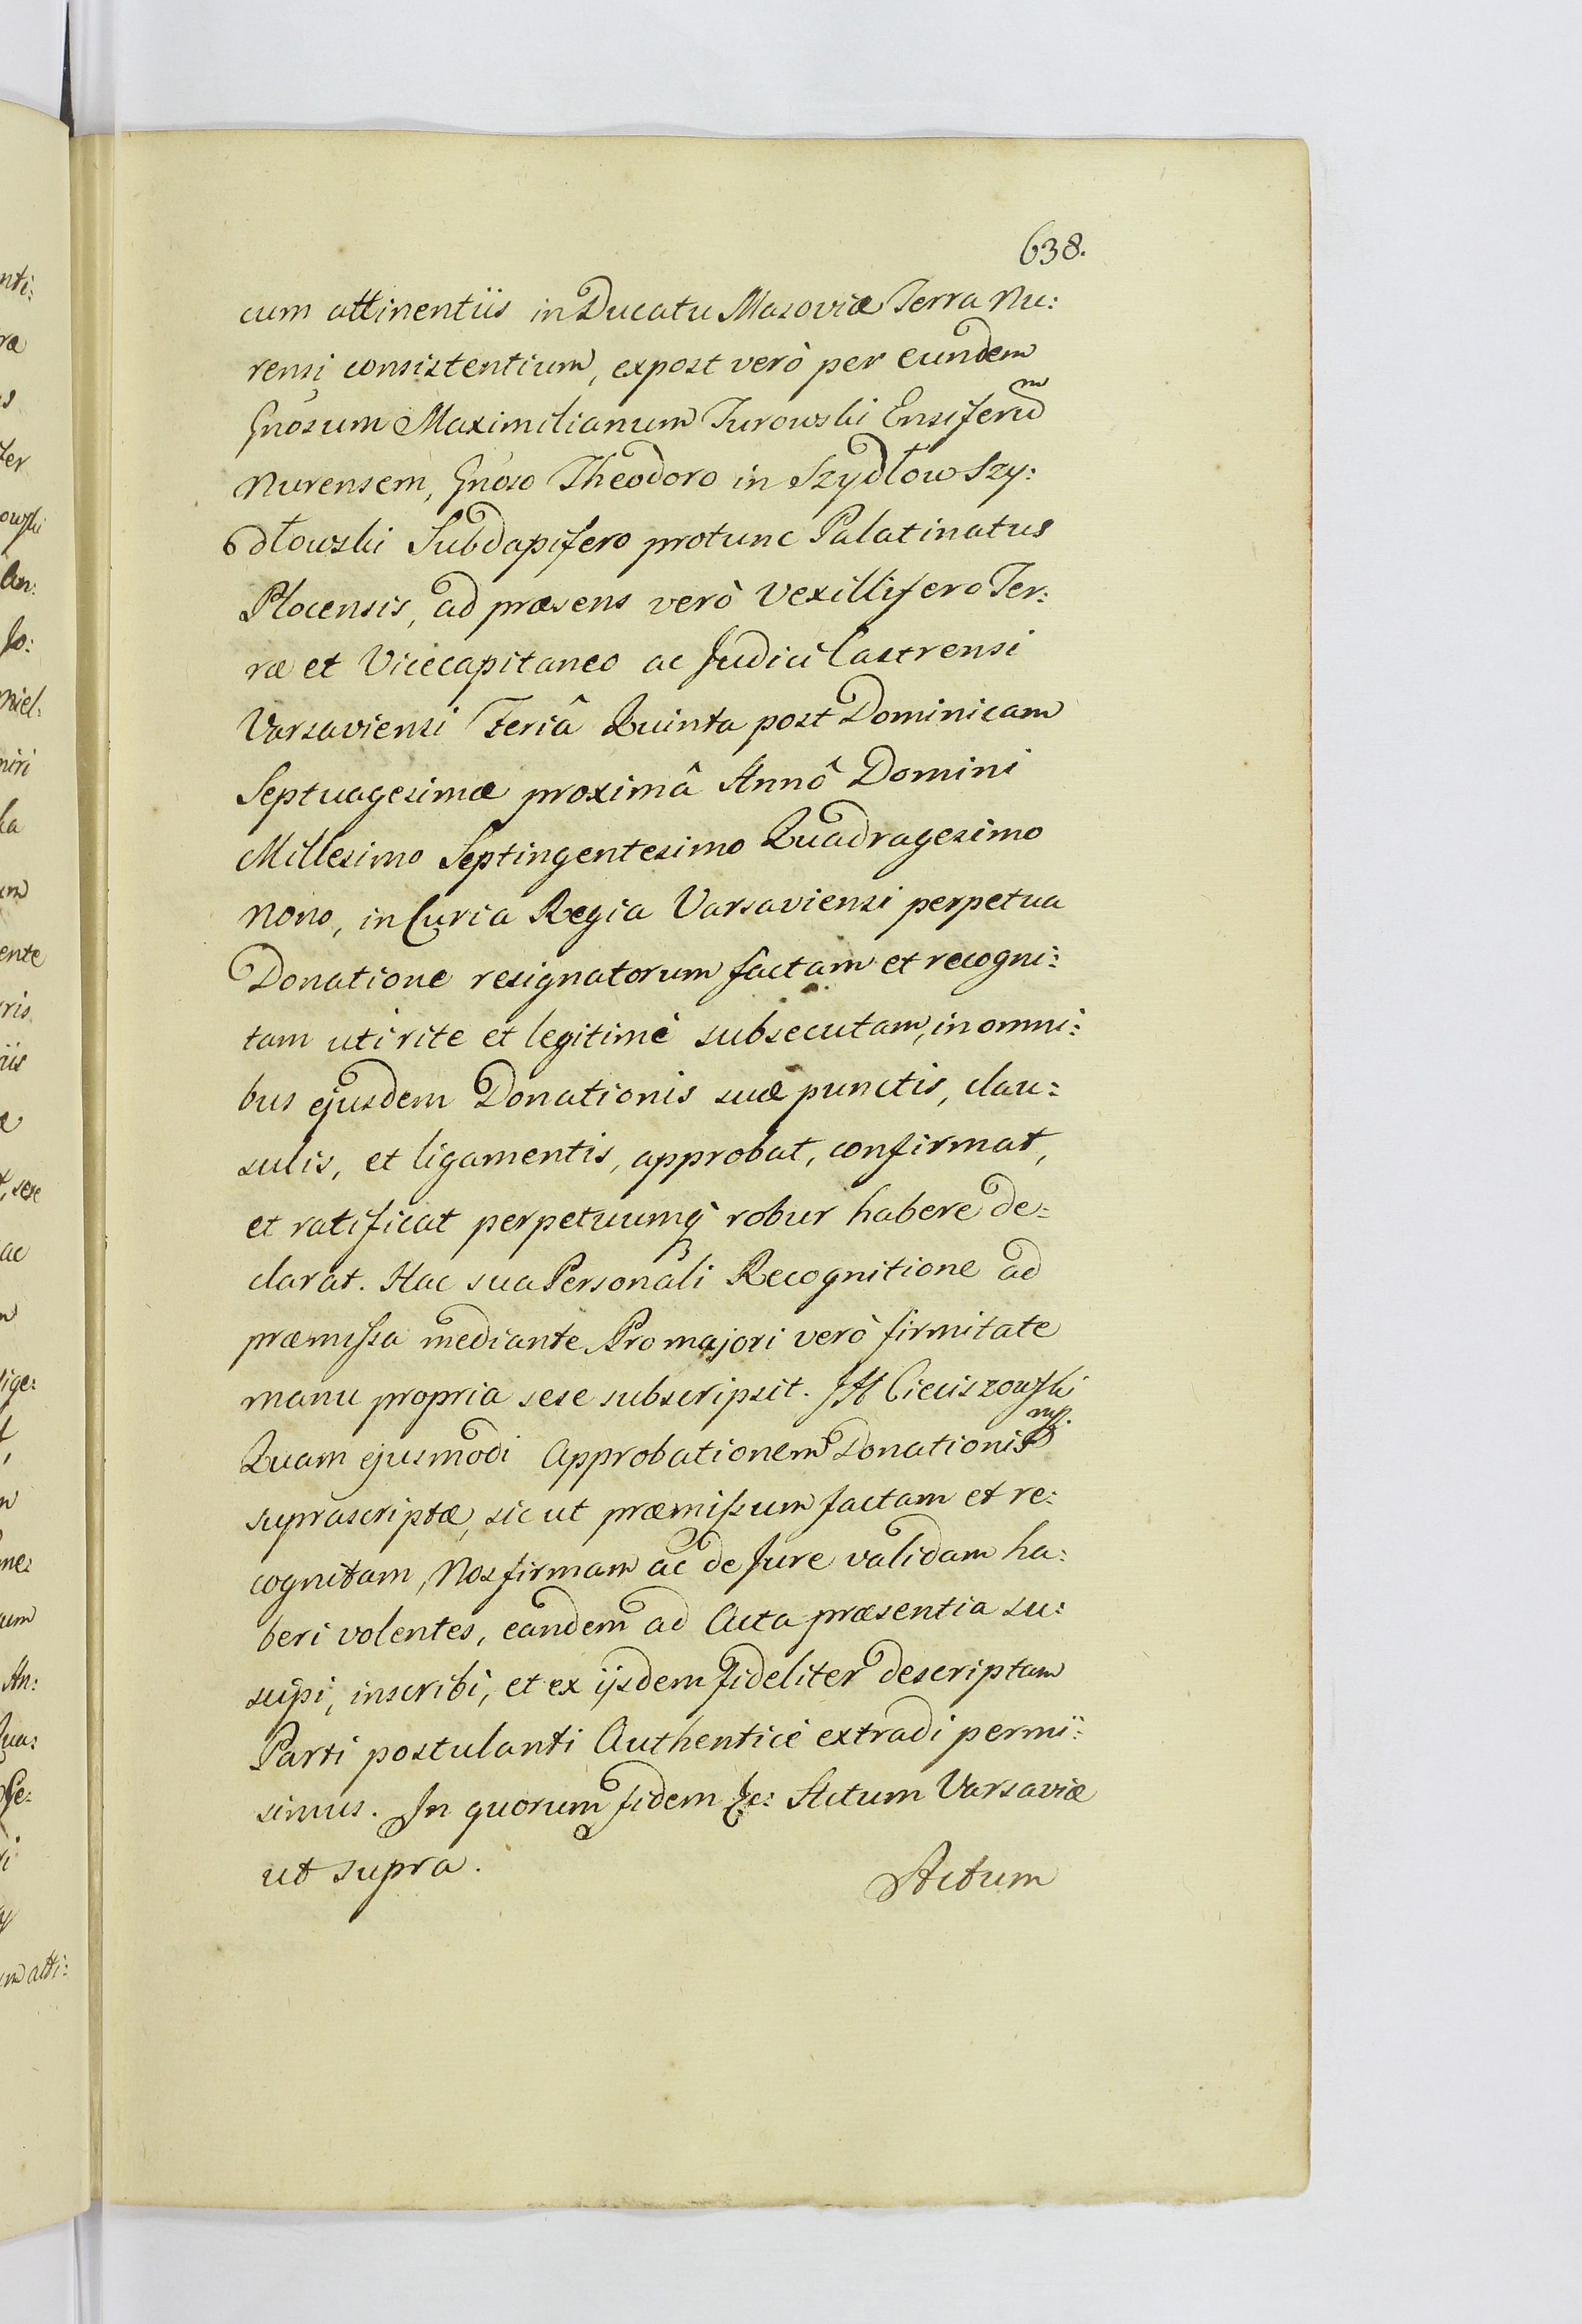 638.
cum attinentiis in Ducatu Masoviæ Terra Nu:
rensi consistentium, expost verò per eundem
Gnosum Maximilianum Turowski Ensiferum
Nurensem, Gnoso Theodoro in Szydłow Szy:
dłowski Subdapifero protunc Palatinatus
Plocensis, ad præsens verò Vexillifero Ter:
ræ et Vicecapitaneo ac Judici Castrensi
Varsaviensi Feriâ Quinta post Dominicam
Septuagesimæ proximâ Annô Domini
Millesimo Septingentesimo Quadragesimo
Nono, in Curia Regia Varsaviensi perpetua
Donatione resignatorum factam et recogni:
tam uti rite et legitimè subsecutam, in omni:
bus ejusdem Donationis suæ punctis, clau:
sulis, et ligamentis, approbat, confirmat,
et ratificat perpetuumq robur habere de:
clarat. Hac sua Personali Recognitione ad
præmissa mediante Pro majori verò firmitate
manu propria sese subscripsit. Cieciszowski
mp.
Quam ejusmodi Approbationem Donationis
suprascriptæ, sic ut præmissum factam et re:
cognitam, Nos firmam ac de Jure validam ha:
beri volentes, eandem ad Acta præsentia su:
scipi, inscribi, et ex ijsdem fideliter descriptam
Parti postulanti Authenticè extradi permi:
simus. In quorum fidem &c: Actum Varsaviæ
ut supra.
Actum
nti:
ræ
ter
owski
miel:
ente
ris
iis
sese
ac
lige:
um
An:
m atti: